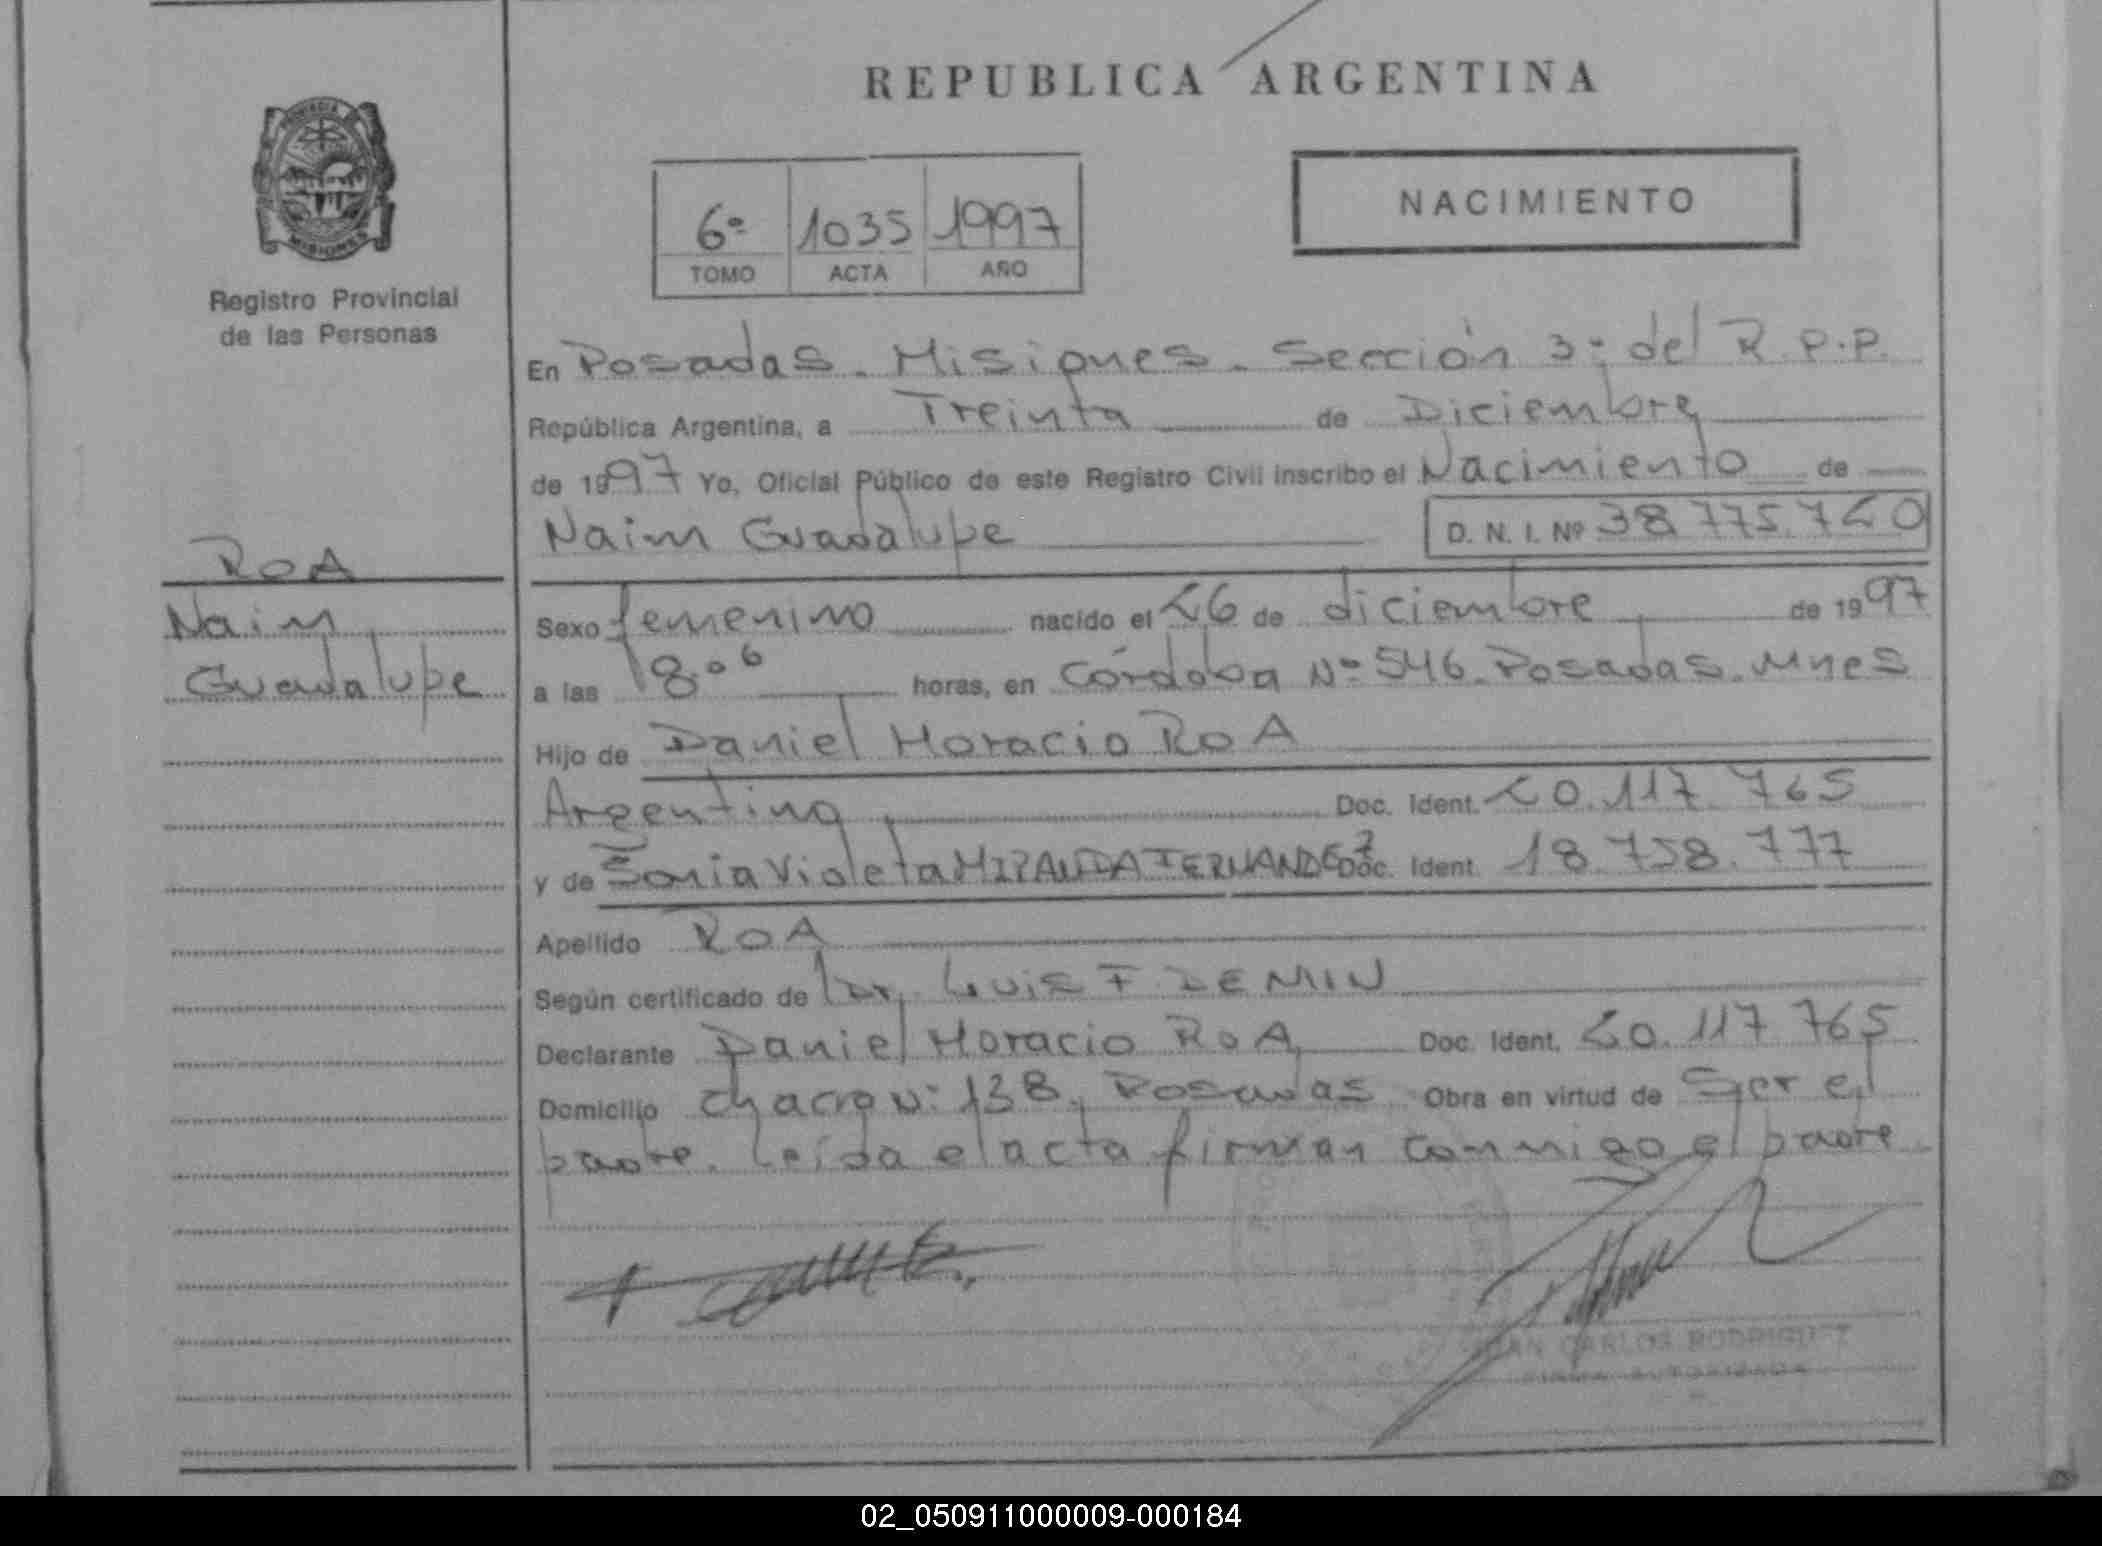 REPUBLICA ARGENTINA
PROVINCIA
MISIONES
Registro Provincial
de las Personas
6º 1035 1997
TOMO ACTA AÑO
NACIMIENTO
En Posadas. Misiones. Sección 3ª del R.P.P.
República Argentina, a Treinta de Diciembre
de 1997 Yo, Oficial Público de este Registro Civil inscribo el Nacimiento de
Naim Guadalupe D. N. I. Nº 38.775.720
ROA
Naim
Guadalupe
Sexo femenino nacido el 26 de diciembre de 1997
a las 18.06 horas, en Córdoba Nº 546. Posadas. Mnes
Hijo de Daniel Horacio ROA
Argentino Doc. Ident. 20.117.765
y de Sonia Violeta MIRANDA FERNANDEZ Doc. Ident. 18.758.777
Apellido ROA
Según certificado de Dr. Luis F. DEMIN
Declarante Daniel Horacio ROA Doc. Ident. 20.117.765
Domicilio Chacra Nº 138. Posadas Obra en virtud de Ser el
padre. Leída el acta firman conmigo el padre
JUAN CARLOS RODRIGUEZ
FIRMA AUTORIZADA
02_050911000009-000184